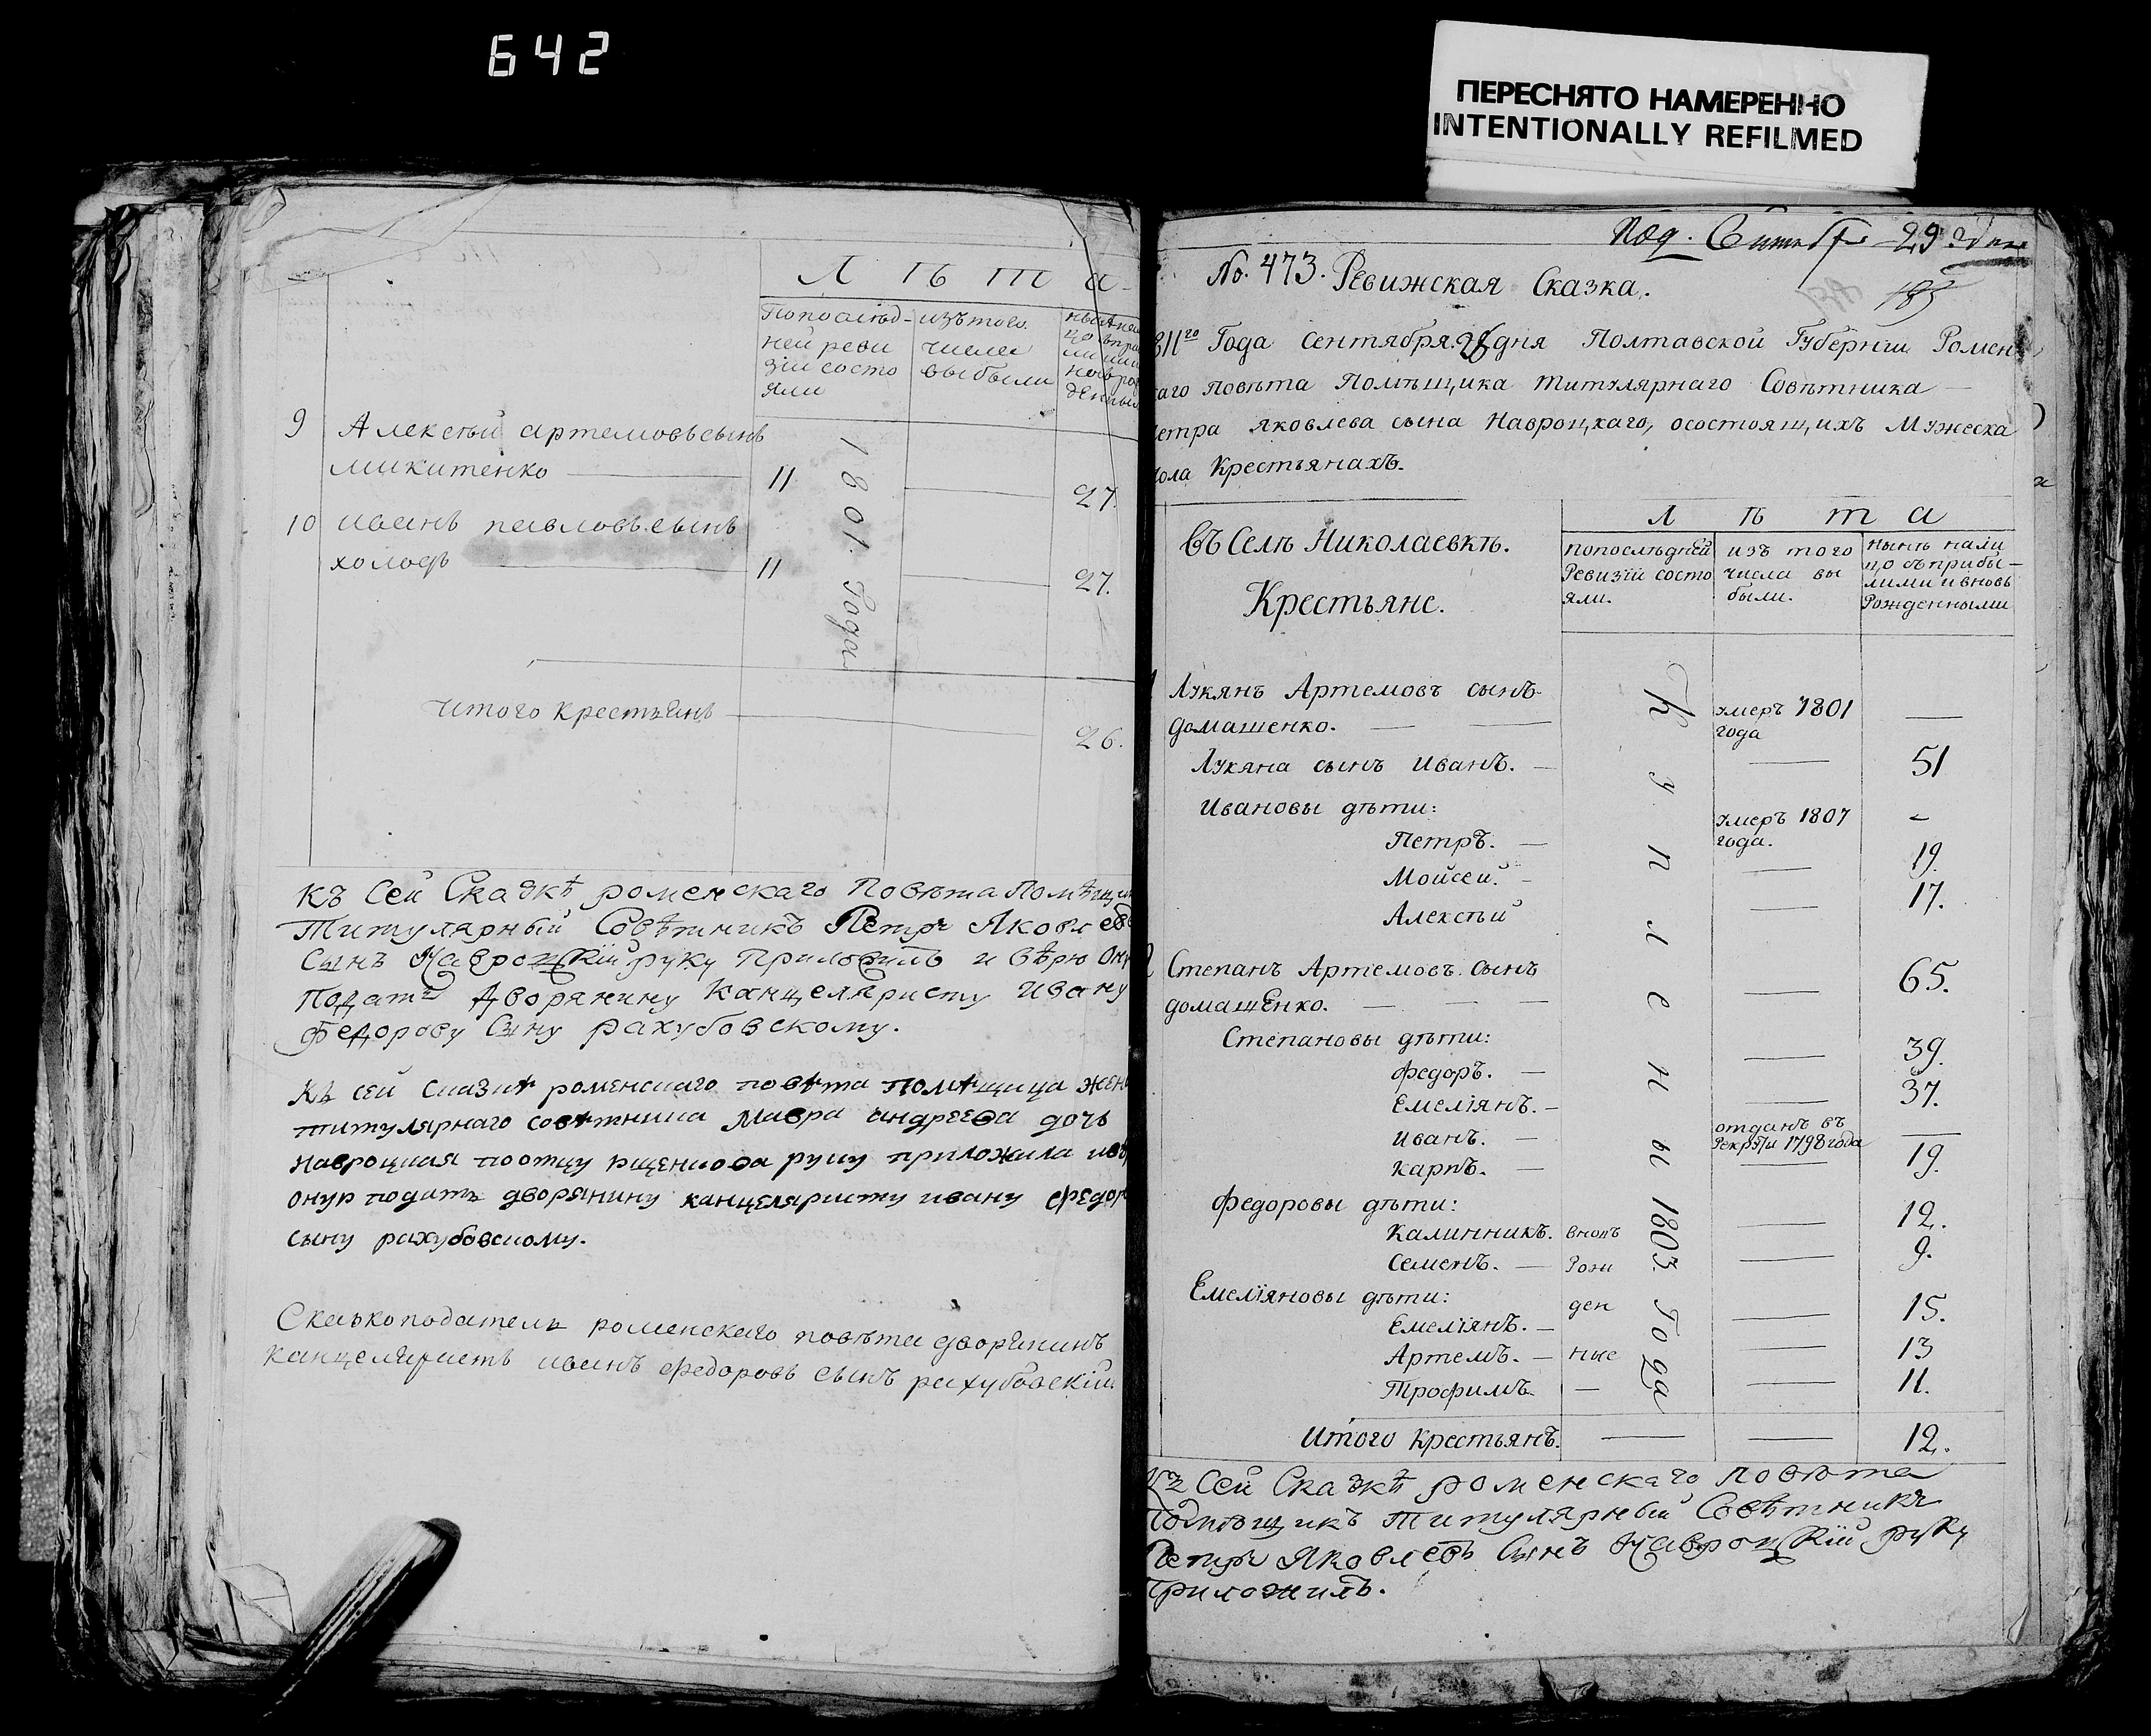 642
ПЕРЕСНЯТО НАМЕРЕННО
INTENTIONALLY REFILMED
Л ѣ т а
По послѣд-
ней реви
зіи состо
яли
изъ того
числа
выбыли
9 Алексѣй артемовъ сынъ
микитенко 11 27.
10 иванъ павловъ сынъ
холодъ 11 27.
1801. Года
итого крестьянъ 26.
Къ Сей Сказкѣ роменскаго Повѣта Помѣщи
Титулярный Совѣтникъ Петръ Яковлев
Сынъ Навроцкій руку Приложилъ и вѣрю Он
Подать Дворянину Канцеляристу Ивану
Федорову Сыну рахубовскому.
Къ сей сказкѣ роменскаго повѣта помѣщица жен
титулярнаго совѣтника Мавра андреева дочь
Навроцкая поотцу ищенкова руку приложила ивѣ
оную подать дворянину канцеляристу ивану федор
сыну рахубовскому.
Сказкоподатель роменскаго повѣта дворянинъ
канцеляристъ иванъ федоровъ сынъ рахубовскій
Под. Сентября 29 дня
185
No. 473. Ревижская Сказка.
811го Года Сентября 28 дня Полтавской Губерніи Ромен
каго Повѣта Помѣщика титулярнаго Совѣтника
Петра яковлева сына Навроцкаго, осостоящихъ Мужеска
Пола Крестьянахъ.
Въ Селѣ Николаевкѣ.
Крестьяне.
Л ѣ т а
попослѣдней
Ревизіи состо
яли.
изъ того
числа вы
были.
нынѣ нали
цо съ прибы-
лими ивновь
Рожденными
Лукянъ Артемовъ сынъ умеръ 1801
домашенко. года
Лукяна сынъ иванъ. 51
Ивановы дѣти:
Петръ. умеръ 1807 года.
Мойсей. 19.
Алексѣй 17.
2 Степанъ Артемовъ сынъ 65.
домашенко.
Степановы дѣти:
федоръ. 39.
Емеліянъ. 37.
иванъ. отданъ въ
Рекруты 1798 года
карпъ. 19.
Федоровы дѣти:
Калинникъ. вновь 12.
Семенъ. Рож 9.
Емеліяновы дѣти: ден
Емеліянъ. 15.
Артемъ. ные 13
Трофимъ. 11.
Куплены 1803. Года
Итого Крестьянъ. 12.
Къ Сей Сказкѣ роменскаго повѣта
Помѣщикъ Титулярный Совѣтникъ
Петръ Яковлевъ Сынъ Навроцкій руку
Приложилъ.